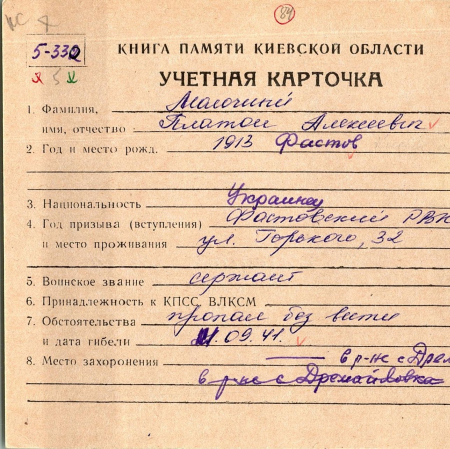 84
5-332
КНИГА ПАМЯТИ КИЕВСКОЙ ОБЛАСТИ
УЧЕТНАЯ КАРТОЧКА
1. Фамилия,
имя, отчество Платон Алексеевич
2. Год и место рожд. 1913 Фастов
3. Национальность Украинец
4. Год призыва (вступления) Фастовский РВК
и место проживания ул. Горького, 32
5. Воинское звание сержант
6. Принадлежность к КПСС, ВЛКСМ
7. Обстоятельства пропал без вести
и дата гибели 09.41.
8. Место захоронения в р-не с Дрем
в р-не с Дремайловка